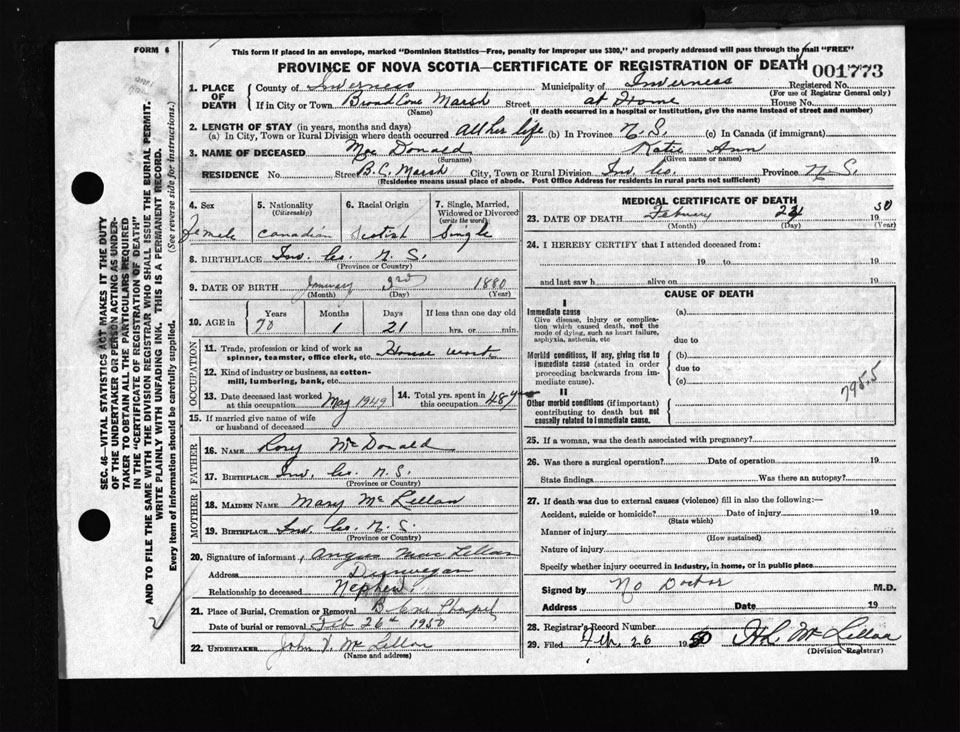 FORM 6
This form if placed in an envelope, marked "Dominion Statistics—Free, penalty for improper use $300," and properly addressed will pass through the mail "FREE"
PROVINCE OF NOVA SCOTIA—CERTIFICATE OF REGISTRATION OF DEATH 001773
1. PLACE OF DEATH
County of Inverness Municipality of Inverness Registered No.
(For use of Registrar General only)
If in City or Town Broad Cove Marsh Street at Home House No.
(Name) (If death occurred in a hospital or institution, give the name instead of street and number)
2. LENGTH OF STAY (in years, months and days)
(a) In City, Town or Rural Division where death occurred all her life (b) In Province N.S. (c) In Canada (if immigrant)
3. NAME OF DECEASED Mac Donald Katie Ann
(Surname) (Given name or names)
RESIDENCE No. Street B.C. Marsh City, Town or Rural Division Inv. Co. Province N.S.
(Residence means usual place of abode. Post Office Address for residents in rural parts not sufficient)
4. Sex
Female
5. Nationality (Citizenship)
Canadian
6. Racial Origin
Scotish
7. Single, Married, Widowed or Divorced (write the word)
Single
8. BIRTHPLACE Inv. Co. N.S.
(Province or Country)
9. DATE OF BIRTH January 3rd 1880
(Month) (Day) (Year)
10. AGE in Years Months Days If less than one day old
70 1 21 hrs. or min.
OCCUPATION
11. Trade, profession or kind of work as spinner, teamster, office clerk, etc. House work
12. Kind of industry or business, as cotton-mill, lumbering, bank, etc.
13. Date deceased last worked at this occupation May 1949
14. Total yrs. spent in this occupation 48 yrs
15. If married give name of wife or husband of deceased
FATHER
16. NAME Rory McDonald
17. BIRTHPLACE Inv. Co. N.S.
(Province or Country)
MOTHER
18. MAIDEN NAME Mary McLellan
19. BIRTHPLACE Inv. Co. N.S.
(Province or Country)
20. Signature of informant Angus MacLellan
Address Dunvegan
Relationship to deceased Nephew
21. Place of Burial, Cremation or Removal B Cove Chapel
Date of burial or removal Feb 26th 1950
22. UNDERTAKER John V. McLellan
(Name and address)
MEDICAL CERTIFICATE OF DEATH
23. DATE OF DEATH February 24 1950
(Month) (Day) (Year)
24. I HEREBY CERTIFY that I attended deceased from:
19 to 19
and last saw h alive on 19
CAUSE OF DEATH
I
Immediate cause (a)
Give disease, injury or complication which caused death, not the mode of dying, such as heart failure, asphyxia, asthenia, etc
due to
Morbid conditions, if any, giving rise to immediate cause (stated in order proceeding backwards from immediate cause).
(b)
due to
(c)
795.5
II
Other morbid conditions (if important) contributing to death but not causally related to immediate cause.
25. If a woman, was the death associated with pregnancy?
26. Was there a surgical operation? Date of operation 19
State findings Was there an autopsy?
27. If death was due to external causes (violence) fill in also the following:—
Accident, suicide or homicide? Date of injury 19
(State which)
Manner of injury
(How sustained)
Nature of injury
Specify whether injury occurred in industry, in home, or in public place
Signed by No Doctor M.D.
Address Date 19
28. Registrar's Record Number
29. Filed Feb. 26 1950 McLellan
(Division Registrar)
SEC. 46—VITAL STATISTICS ACT MAKES IT THE DUTY
OF THE UNDERTAKER OR PERSON ACTING AS UNDER-
TAKER TO OBTAIN ALL THE PARTICULARS REQUIRED
IN THE "CERTIFICATE OF REGISTRATION OF DEATH"
AND TO FILE THE SAME WITH THE DIVISION REGISTRAR WHO SHALL ISSUE THE BURIAL PERMIT.
WRITE PLAINLY WITH UNFADING INK. THIS IS A PERMANENT RECORD.
Every item of information should be carefully supplied. (See reverse side for instructions.)
2